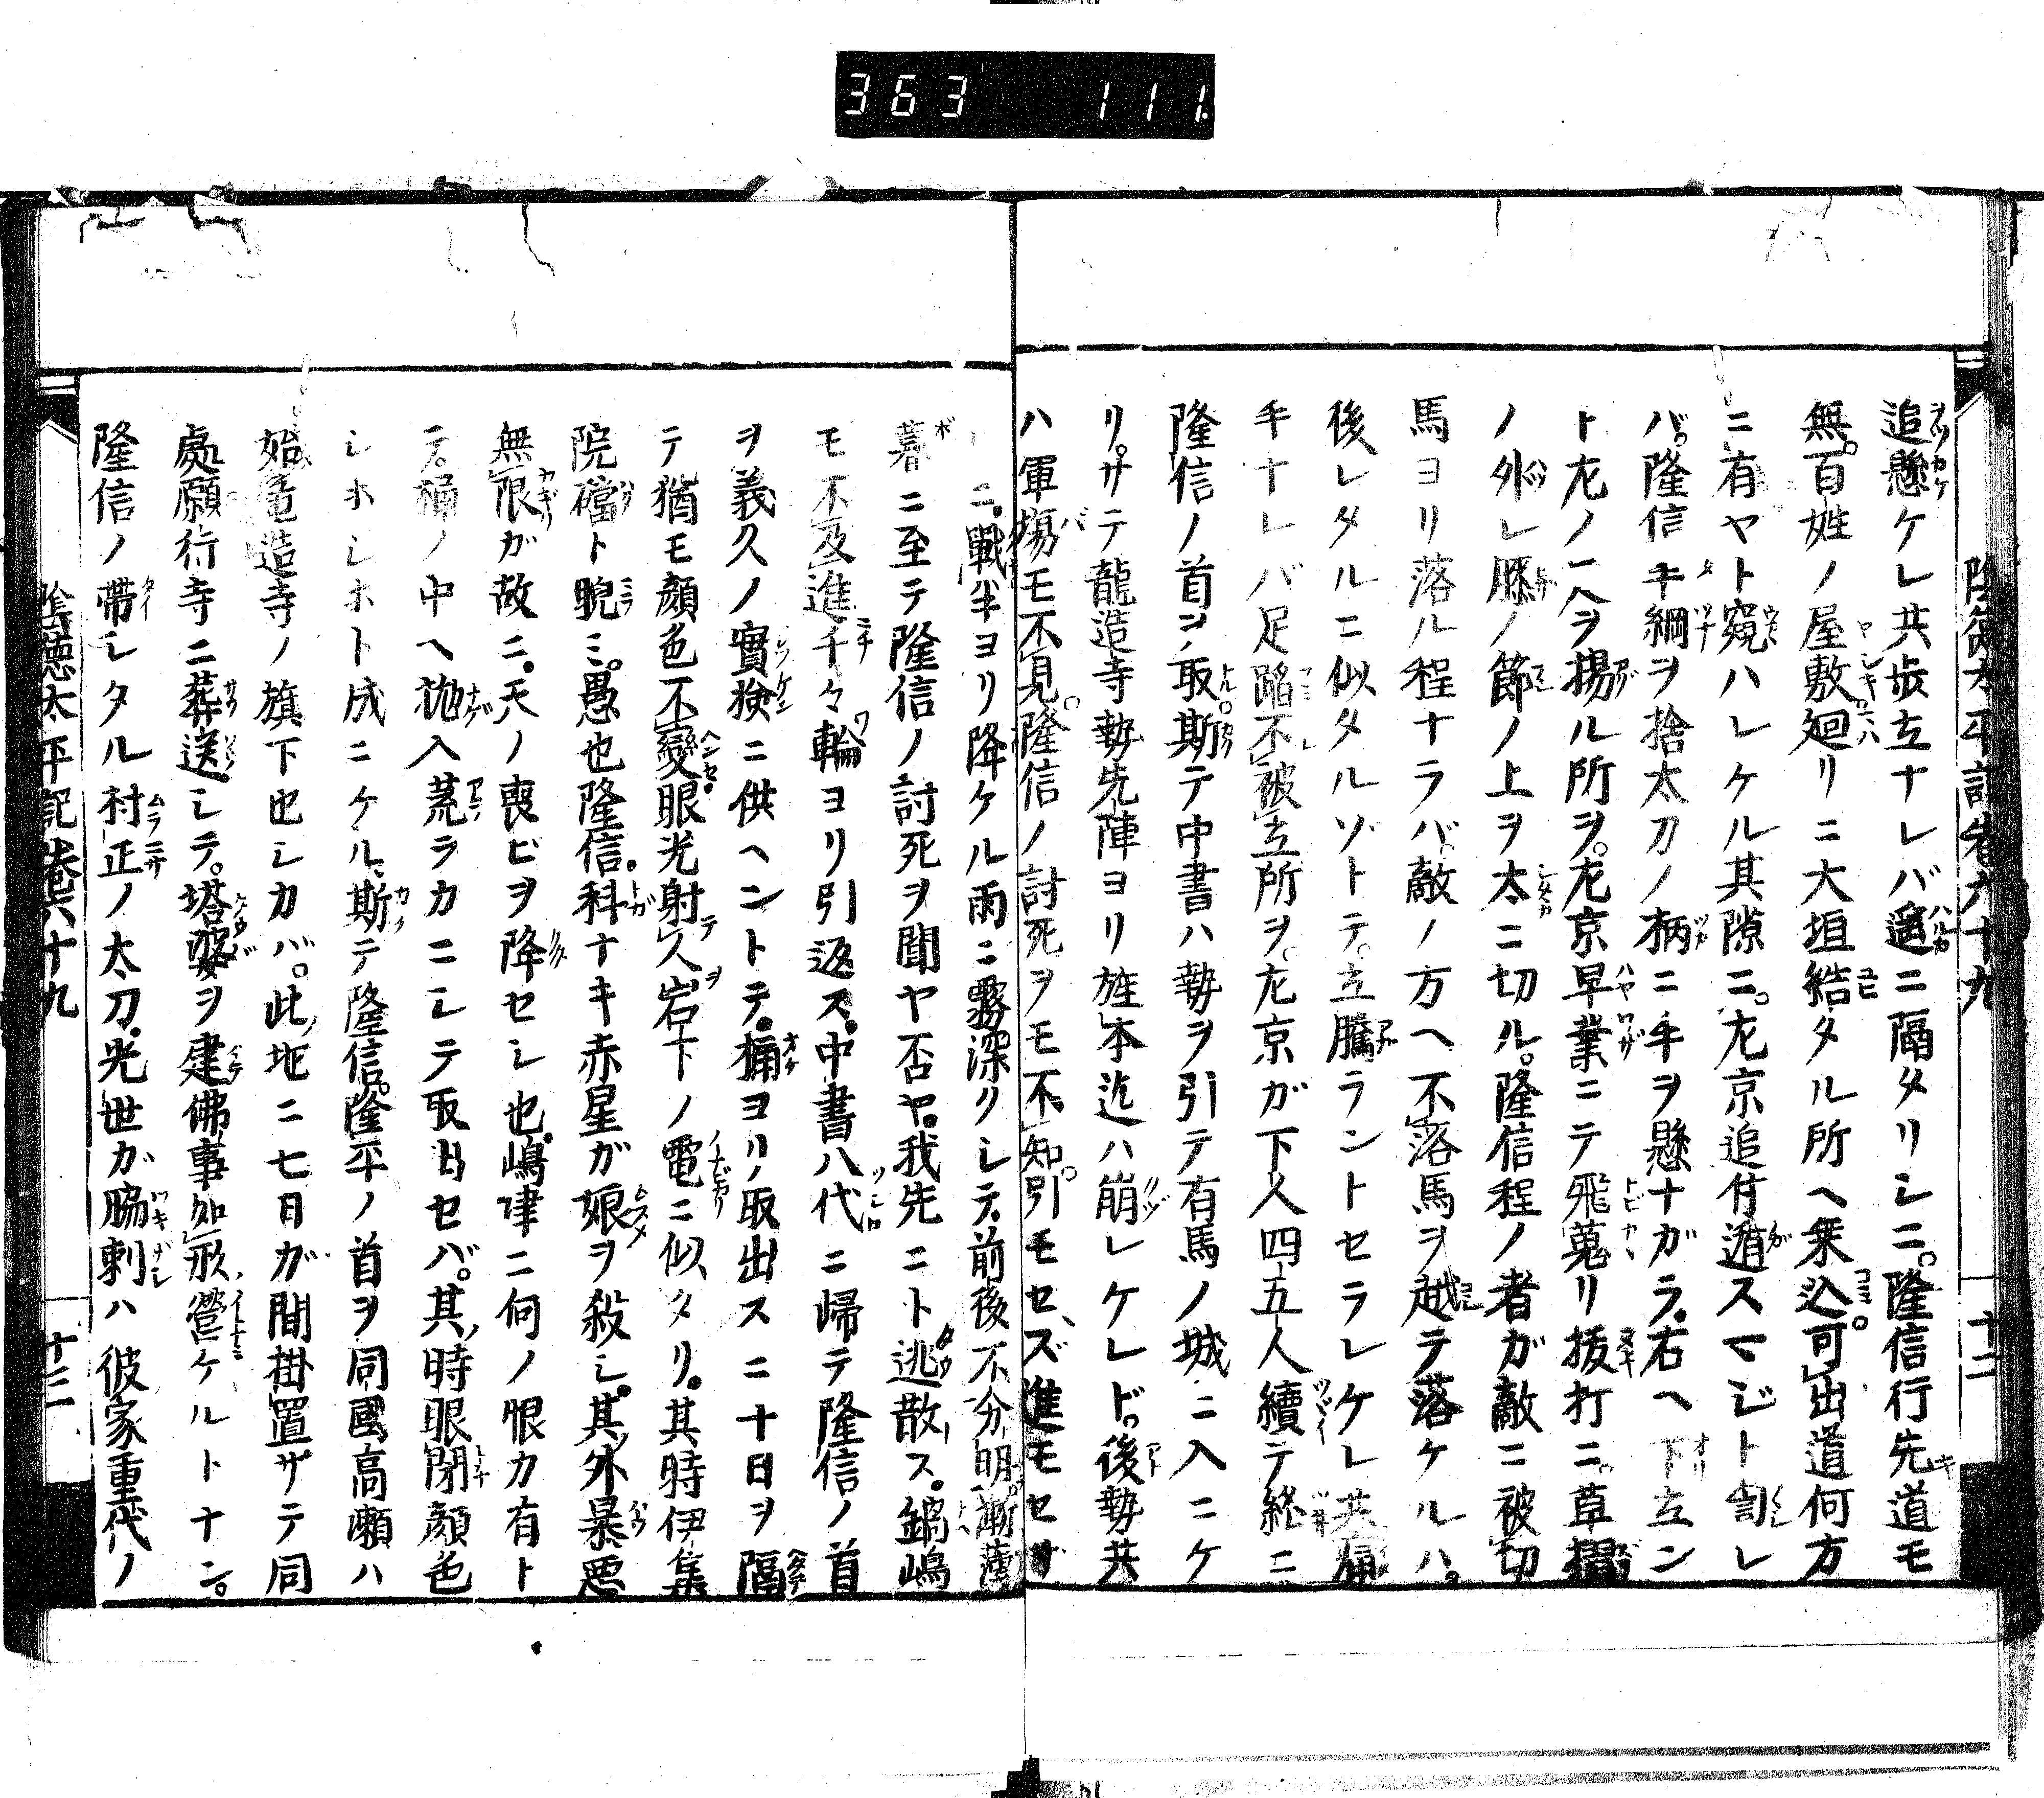 363 111.
陰徳太平記巻六十九
十二
追懸ケレ共歩立ナレバ遥ニ隔タリシニ。隆信行先道モ
無。百姓ノ屋敷廻リニ大垣結タル所ヘ乗込。可出道何方
ニ有ヤト窺ハレケル其隙ニ。左京追付遁スマジト訇レ
バ。隆信手綱ヲ捨太刀ノ柄ニ手ヲ懸ナガラ。右ヘ下立ン
ト左ノ足ヲ揚ル所ヲ。左京早業ニテ飛蒐リ抜打ニ。草摺
ノ外レ膝ノ節ノ上ヲ太ニ切ル。隆信程ノ者ガ敵ニ被切
馬ヨリ落ル程ナラバ。敵ノ方ヘ不落馬ヲ越テ落ケルハ。
後レタルニ似タルゾトテ。立騰ラントセラレケレ共痛
手ナレバ足蹈不被立所ヲ。左京ガ下人四五人續テ終ニ
隆信ノ首ヲ取。斯テ中書ハ勢ヲ引テ有馬ノ城ニ入ニケ
リ。サテ龍造寺勢先陣ヨリ旌本迄ハ崩レケレド。後勢共
ハ軍塲モ不見。隆信ノ討死ヲモ不知。引モセズ進モセザ
ニ。戰半ヨリ降ケル雨ニ霧深クシテ前後不分明。漸薄
暮ニ至テ隆信ノ討死ヲ聞ヤ否ヤ。我先ニト逃散ス。鍋嶋
モ不及進千々輪ヨリ引返ス。中書八代ニ帰テ隆信ノ首
ヲ義久ノ實檢ニ供ヘントテ。桶ヨリ取出スニ十日ヲ隔
テ猶モ顔色不變眼光射人岩下ノ電ニ似タリ。其時伊集
院礑ト睨ミ。愚也隆信。科ナキ赤星ガ娘ヲ殺シ。其外暴悪
無限ガ故ニ。天ノ喪ビヲ降セシ也。嶋津ニ何ノ恨カ有ト
テ。桶ノ中ヘ抛入荒ラカニシテ取出セバ。其時眼閉顔色
シホシホト成ニケル。斯テ隆信。隆平ノ首ヲ同國高瀬ハ
始竜造寺ノ旗下也シカバ。此地ニ七日ガ間掛置サテ同
處願行寺ニ葬送シテ。塔婆ヲ建佛事如形營ケルトナン。
隆信ノ帶シタル村正ノ太刀。光世ガ脇刺ハ彼家重代ノ
陰徳太平記巻六十九
十二